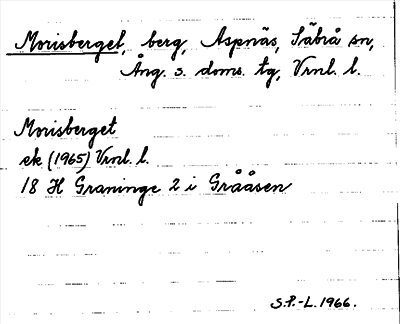 Morisberget, berg, Aspnäs, Säbrå sn,
Ång. s. doms. tg, Vrnl. l.
Morisberget
ek (1965) Vrnl. l.
18 H Graninge 2 i Grååsen
S.P.-L. 1966.